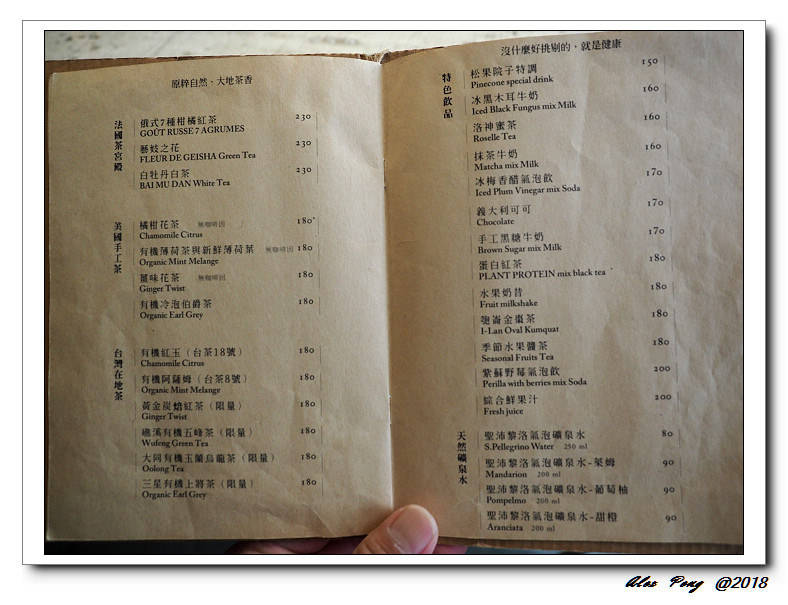 原粹自然、大地茶香
法國茶宮殿
俄式7種柑橘紅茶 230
GOÛT RUSSE 7 AGRUMES
藝妓之花 230
FLEUR DE GEISHA Green Tea
白牡丹白茶 230
BAI MU DAN White Tea
英國手工茶
橘柑花茶 無咖啡因 180
Chamomile Citrus
有機薄荷茶與新鮮薄荷葉 無咖啡因 180
Organic Mint Melange
薑味花茶 無咖啡因 180
Ginger Twist
有機冷泡伯爵茶 180
Organic Earl Grey
台灣在地茶
有機紅玉（台茶18號） 180
Chamomile Citrus
有機阿薩姆（台茶8號） 180
Organic Mint Melange
黃金炭焙紅茶（限量） 180
Ginger Twist
礁溪有機五峰茶（限量） 180
Wufeng Green Tea
大同有機玉蘭烏龍茶（限量） 180
Oolong Tea
三星有機上將茶（限量） 180
Organic Earl Grey
沒什麼好挑剔的，就是健康
特色飲品
松果院子特調 150
Pinecone special drink
冰黑木耳牛奶 160
Iced Black Fungus mix Milk
洛神蜜茶 160
Roselle Tea
抹茶牛奶 160
Matcha mix Milk
冰梅香醋氣泡飲 170
Iced Plum Vinegar mix Soda
義大利可可 170
Chocolate
手工黑糖牛奶 170
Brown Sugar mix Milk
蛋白紅茶 180
PLANT PROTEIN mix black tea
水果奶昔 180
Fruit milkshake
噶崙金棗茶 180
I-Lan Oval Kumquat
季節水果醬茶 180
Seasonal Fruits Tea
紫蘇野莓氣泡飲 200
Perilla with berries mix Soda
綜合鮮果汁 200
Fresh juice
天然礦泉水
聖沛黎洛氣泡礦泉水 80
S.Pellegrino Water 250 ml
聖沛黎洛氣泡礦泉水-萊姆 90
Mandarion 200 ml
聖沛黎洛氣泡礦泉水-葡萄柚 90
Pompelmo 200 ml
聖沛黎洛氣泡礦泉水-甜橙 90
Aranciata 200 ml
Alex Peng @2018